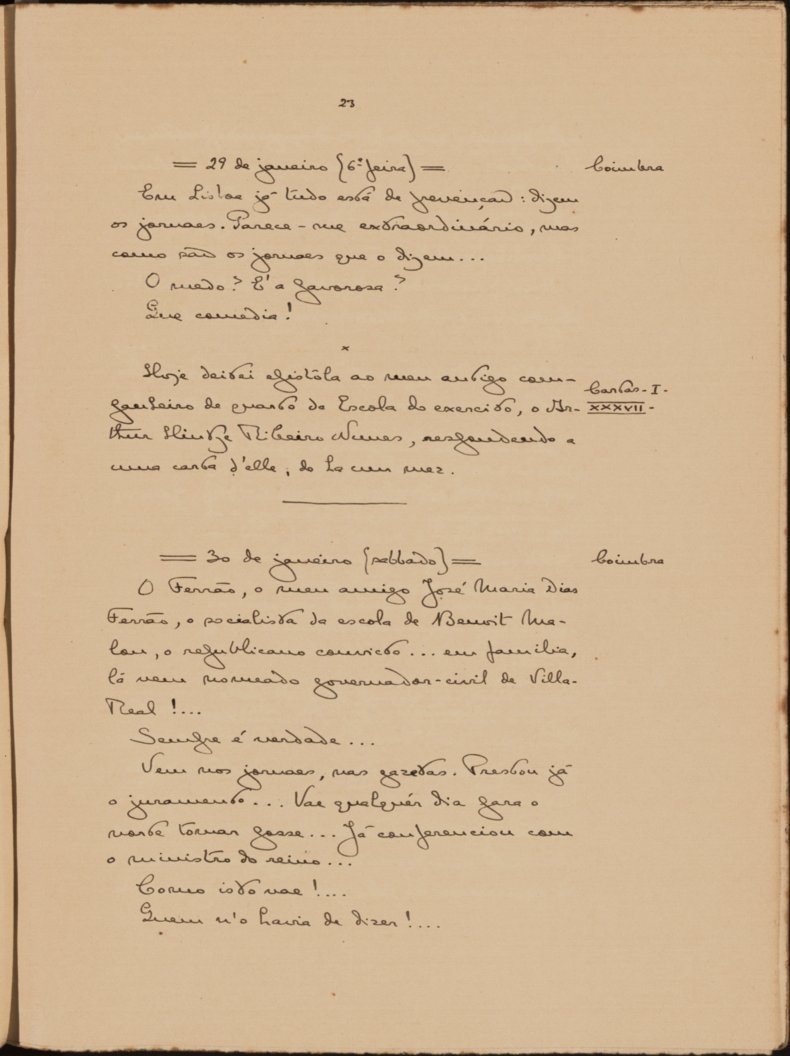 23
= 29 de janeiro (6.ª feira) = Coimbra
Em Lisboa já tudo está de prevenção: dizem
os jornaes. Parece-me extraordinário, mas
como são os jornaes que o dizem...
O medo? E' a pavorosa?
Que comedia!
×
Hoje deitei epistóla ao meu antigo com-
Cartas-I-
panheiro de quarto da Escola do exercito, o Ar-
XXXVII-
thur Hintze Ribeiro Nunes, respondendo a
uma carta d'elle, do ha um mez.
= 30 de janeiro (sabbado) = Coimbra
O Ferrão, o meu amigo José Maria Dias
Ferrão, o socialista da escola de Benoit Ma-
lon, o republicano convicto... em familia,
lá vem nomeado governador-civil de Villa-
Real!...
Sempre é verdade...
Vem nos jornaes, nas gazetas. Prestou já
o juramento... Vae qualquér dia para o
norte tomar posse... Já conferenciou com
o ministro do reino...
Como isto vae!...
Quem n'o havia de dizer!...